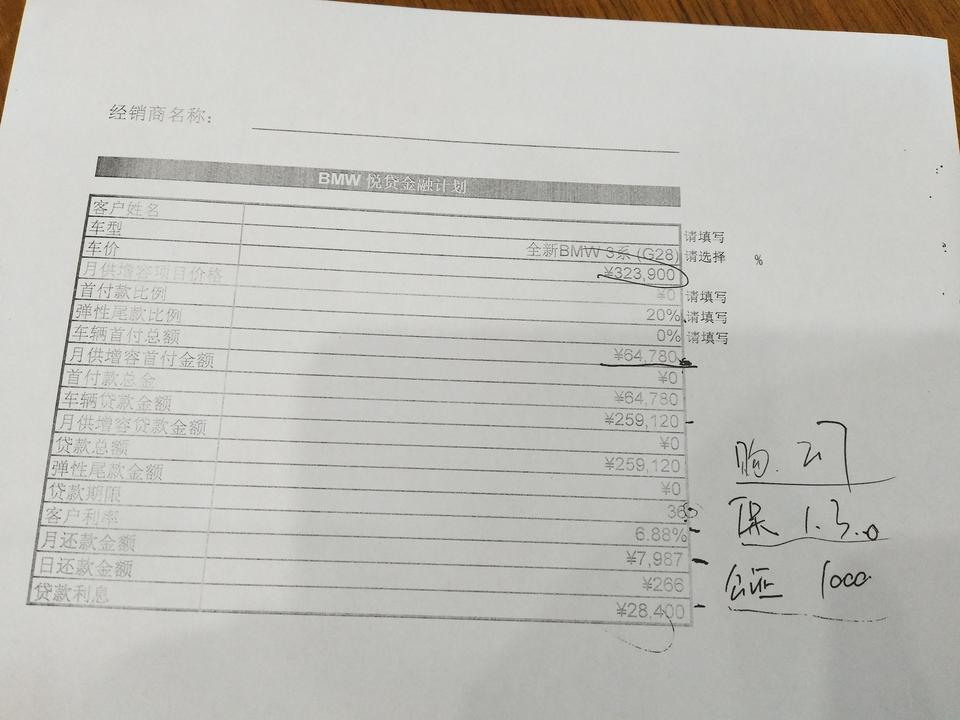 经销商名称：
BMW 悦贷金融计划
客户姓名
车型 全新BMW 3系 (G28) 请填写
车价 ¥323,900 请选择 %
月供增容项目价格 ¥0 请填写
首付款比例 20% 请填写
弹性尾款比例 0% 请填写
车辆首付总额 ¥64,780
月供增容首付金额 ¥0
首付款总金 ¥64,780
车辆贷款金额 ¥259,120
月供增容贷款金额 ¥0
贷款总额 ¥259,120
弹性尾款金额 ¥0
贷款期限 36
客户利率 6.88%
月还款金额 ¥7,987
日还款金额 ¥266
贷款利息 ¥28,400
购. 2.7
保 1.3.0
公证 1000